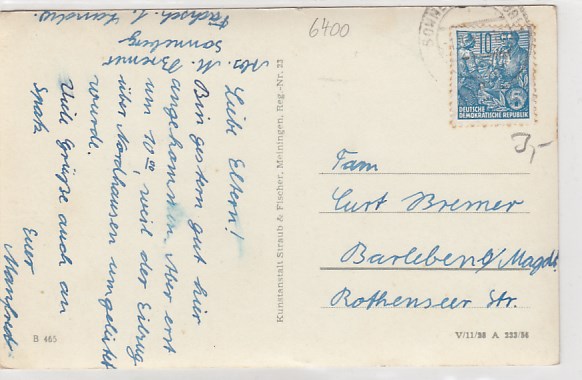 Abs. M. Bremer
Sonneberg
Fachsch. f. Landw.
Liebe Eltern!
Bin gestern gut hier
angekommen. Aber erst
um 10⁰⁰, weil der Eilzug
über Nordhausen umgeleitet
wurde.
Viele Grüße auch an
Spatz
Euer
Manfred
B 465
Kunstanstalt Straub & Fischer, Meiningen, Reg.-Nr. 23
6400
SONNE
10
5
DEUTSCHE
DEMOKRATISCHE REPUBLIK
3,-
Fam
Curt Bremer
Barleben b/Magdb.
Rothenseer Str.
V/11/28 A 233/56